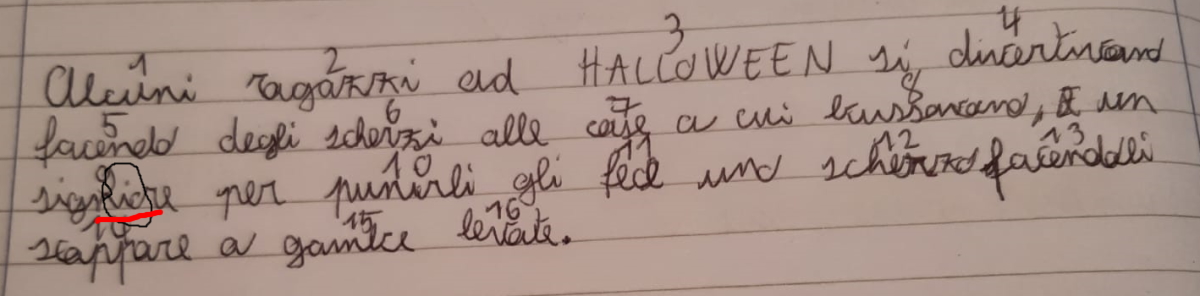 1 2 3 4
Alcuni ragazzi ad HALLOWEEN si divertivano
5 6 7 8
facendo degli scherzi alle case a cui bussavano, E un
9 10 11 12 13
signore per punirli gli fece uno scherzo facendoli
14 15 16
scappare a gambe levate.